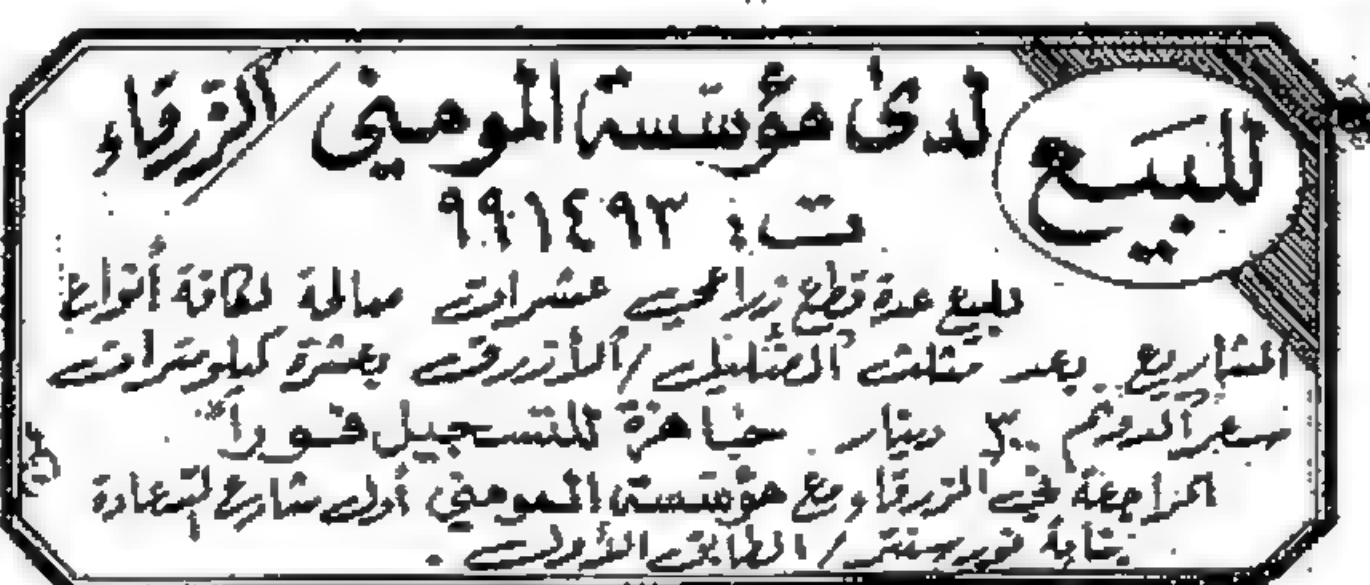 للبيع
لدى مؤسسة المومني / الزرقاء
ت: ٩٩١٤٩٣
للبيع عدة قطع زراعي عشرات صالحة لكافة أنواع
المشاريع بعد مثلث الضليل / الأزرق بعشرة كيلومترات
سعر الدونم ٣٠٠ دينار جاهزة للتسجيل فوراً
المراجعة في الزرقاء مع مؤسسة المومني أول شارع السعادة
بناية نور سنتر / الطابق الأول.